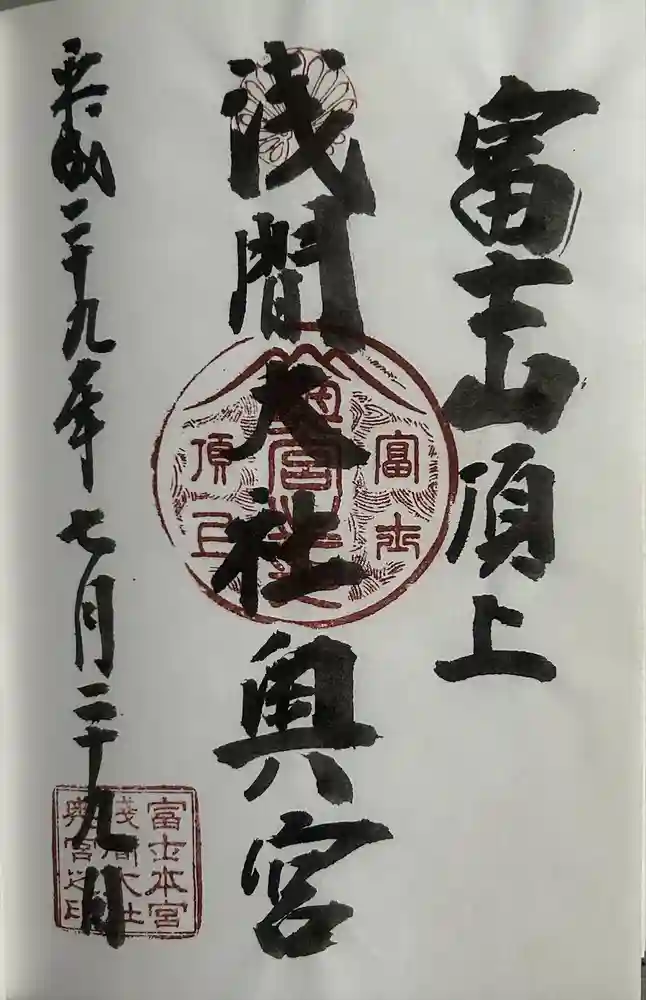 富士山頂上
浅間大社奥宮
平成二十九年七月二十九日
富士
頂上
富士本宮
淺間大社
奥宮之印